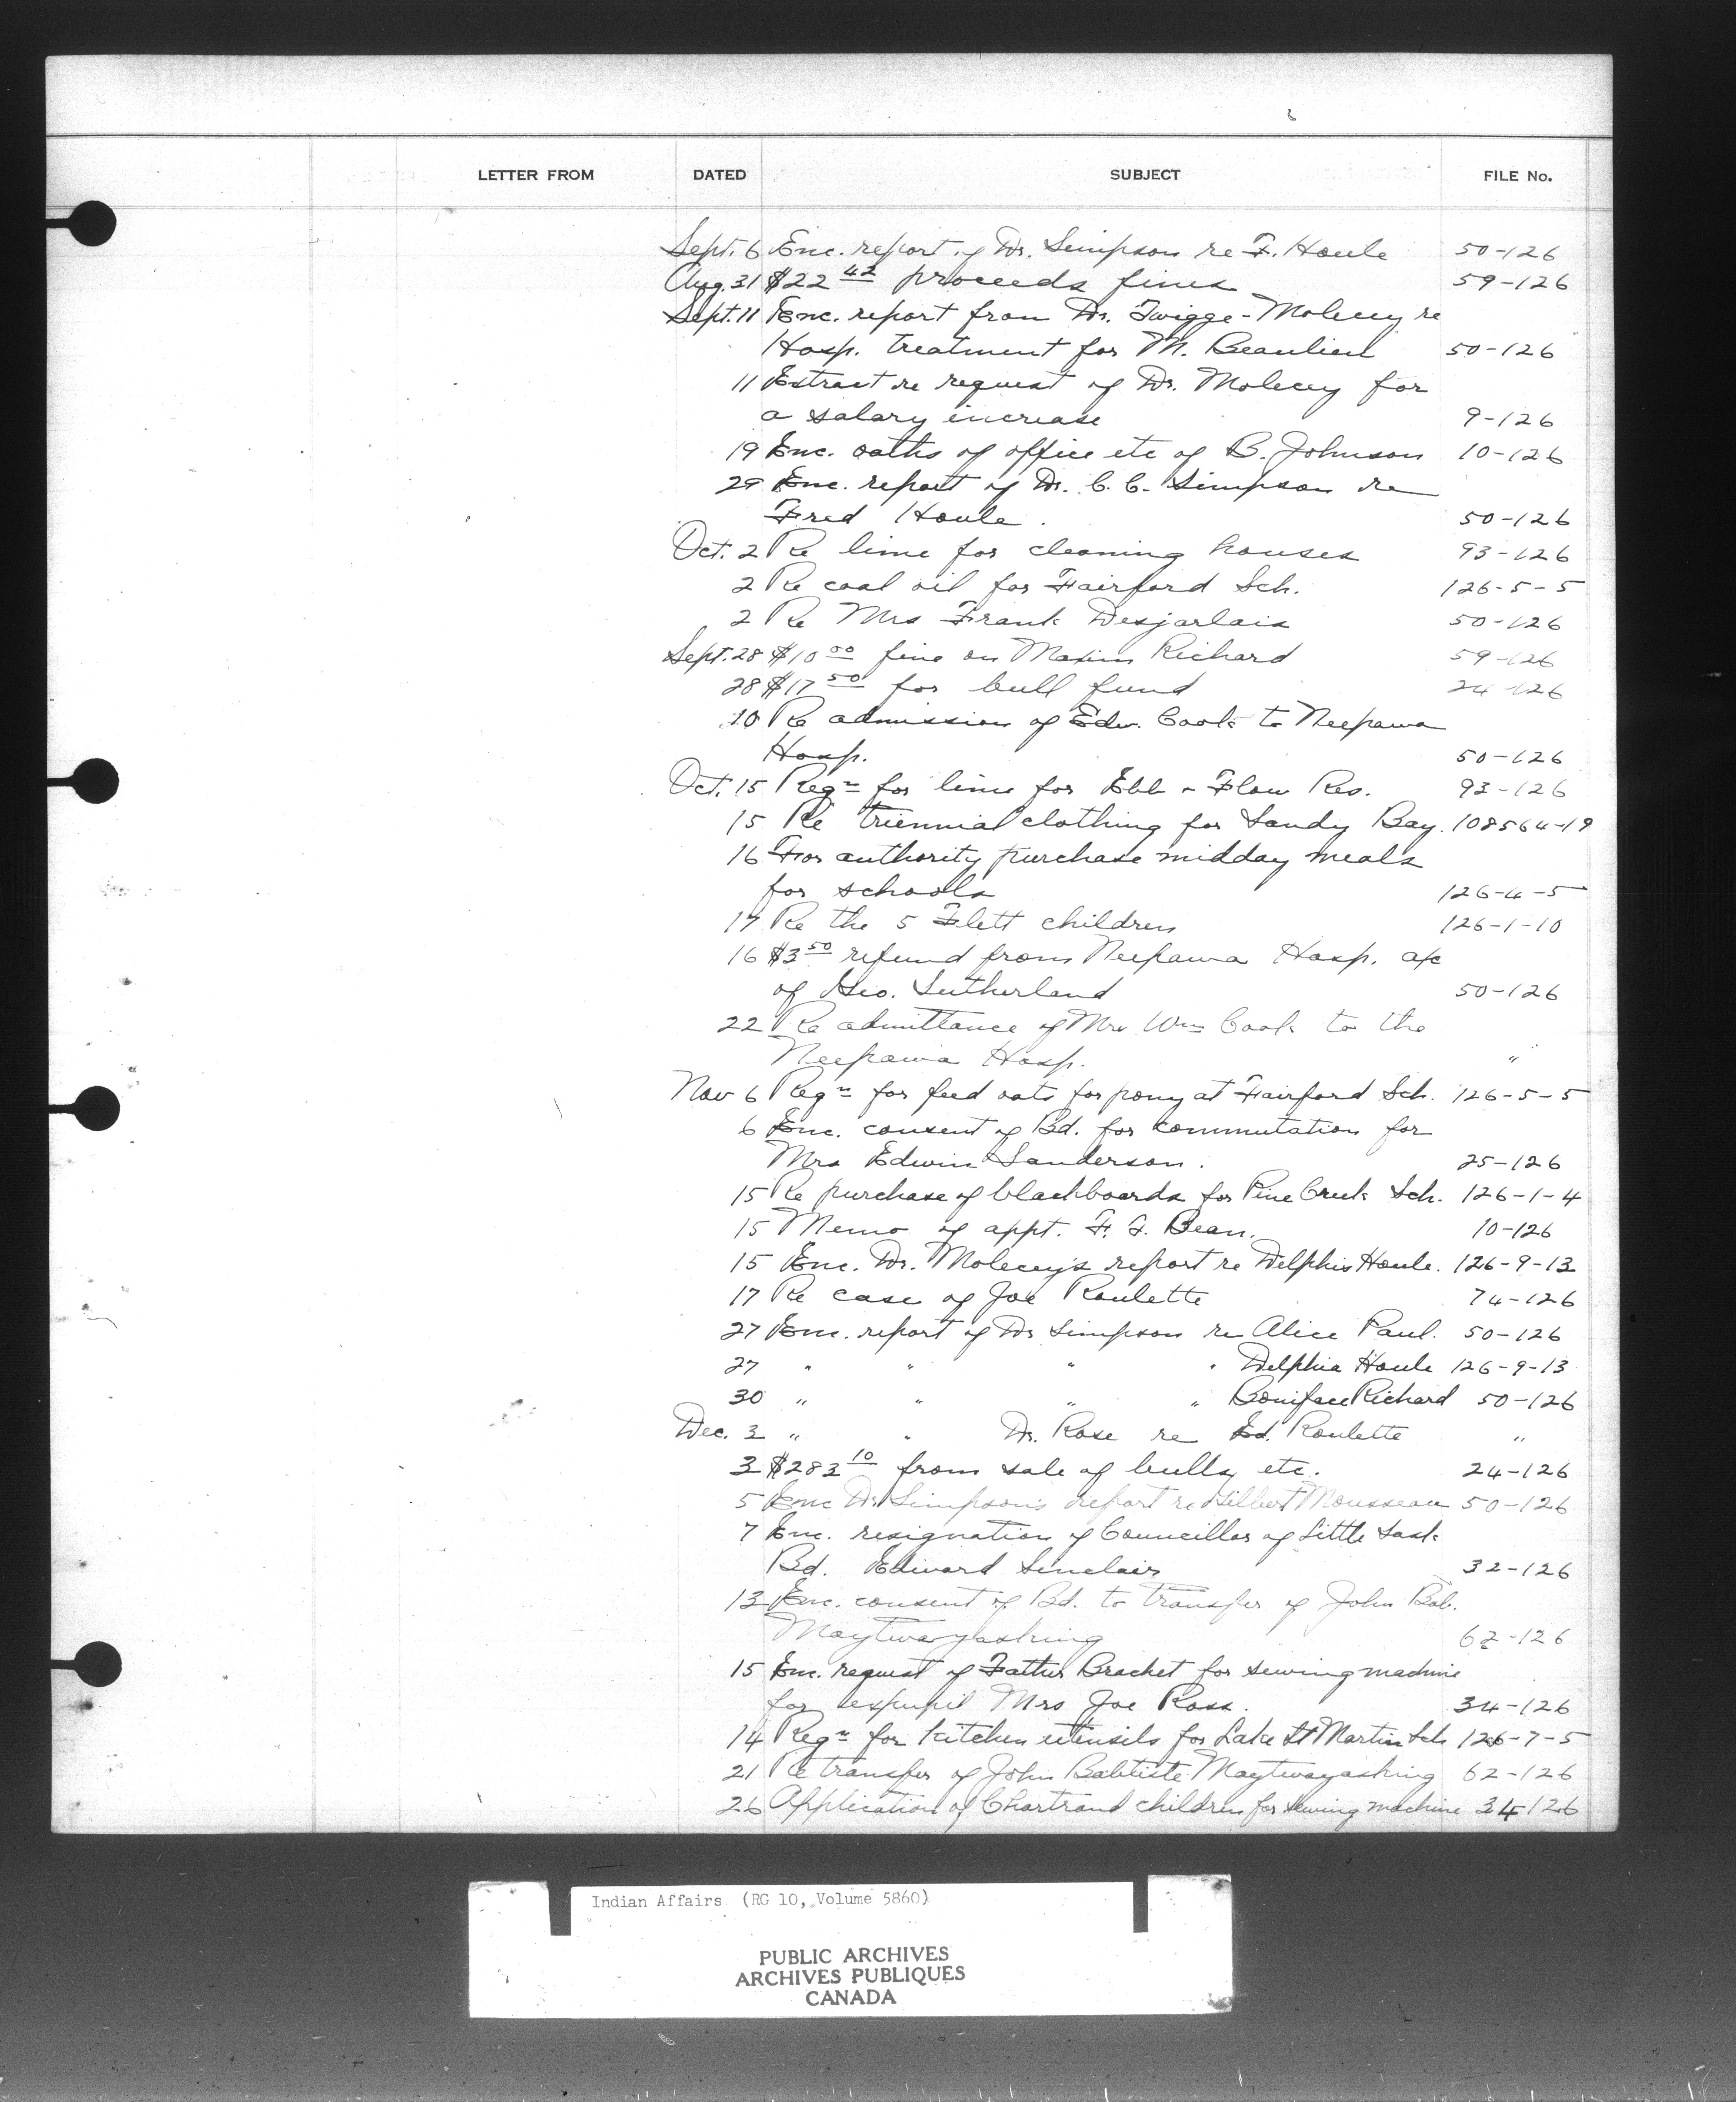 LETTER FROM DATED SUBJECT FILE No.
Sept. 6 Enc. report of Dr. Simpson re F. Houle 50-126
Aug. 31 $22 42 proceeds fines 59-126
Sept. 11 Enc. report from Dr. Twigge-Molecey re
Hosp. treatment for M. Beaulieu 50-126
11 Extract re request of Dr. Molecey for
a salary increase 9-126
19 Enc. oaths of office etc of B. Johnson 10-126
29 Enc. report of Dr. C. C. Simpson re
Fred Houle. 50-126
Oct. 2 Re lime for cleaning houses 93-126
2 Re coal oil for Fairford Sch. 126-5-5
2 Re Mrs Frank Desjarlais 50-126
Sept. 28 $10 00 fine on Maxim Richard 59-126
28 $17 50 for bull fund 24-126
10 Re admission of Edw. Cook to Neepawa
Hosp. 50-126
Oct. 15 Reqn for lime for Ebb & Flow Res. 93-126
15 Re triennial clothing for Sandy Bay. 108564-19
16 For authority purchase midday meals
for schools 126-4-5
17 Re the 5 Flett children 126-1-10
16 $3 50 refund from Neepawa Hosp. a/c
of Geo. Sutherland 50-126
22 Re admittance of Mrs Wm Cook to the
Neepawa Hosp. "
Nov 6 Reqn for feed oats for pony at Fairford Sch. 126-5-5
6 Enc. consent of Bd. for commutation for
Mrs Edwin Sanderson. 25-126
15 Re purchase of blackboards for Pine Creek Sch. 126-1-4
15 Memo of appt. F. F. Bean. 10-126
15 Enc. Dr. Molecey's report re Delphis Houle. 126-9-13
17 Re case of Joe Roulette 74-126
27 Enc. report of Dr Simpson re Alice Paul. 50-126
27 " " " " Delphia Houle 126-9-13
30 " " " " Boniface Richard 50-126
Dec. 3 " " Dr. Rose re Ed. Roulette "
3 $283 10 from sale of bulls, etc. 24-126
5 Enc Dr. Simpson's report re Gilbert Mousseau 50-126
7 Enc. resignation of Councillor of Little Sask
Bd. Edward Sinclair 32-126
13 Enc. consent of Bd. to transfer of John Bab.
Maytwayashing 62-126
15 Enc. request of Father Brachet for sewing machine
for expupil Mrs Joe Ross. 34-126
14 Reqn for kitchen utensils for Lake St Martin Sch 126-7-5
21 Re transfer of John Babtiste Maytwayashing 62-126
26 Application of Chartrand children for sewing machine 34-126
Indian Affairs (RG 10, Volume 5860)
PUBLIC ARCHIVES
ARCHIVES PUBLIQUES
CANADA